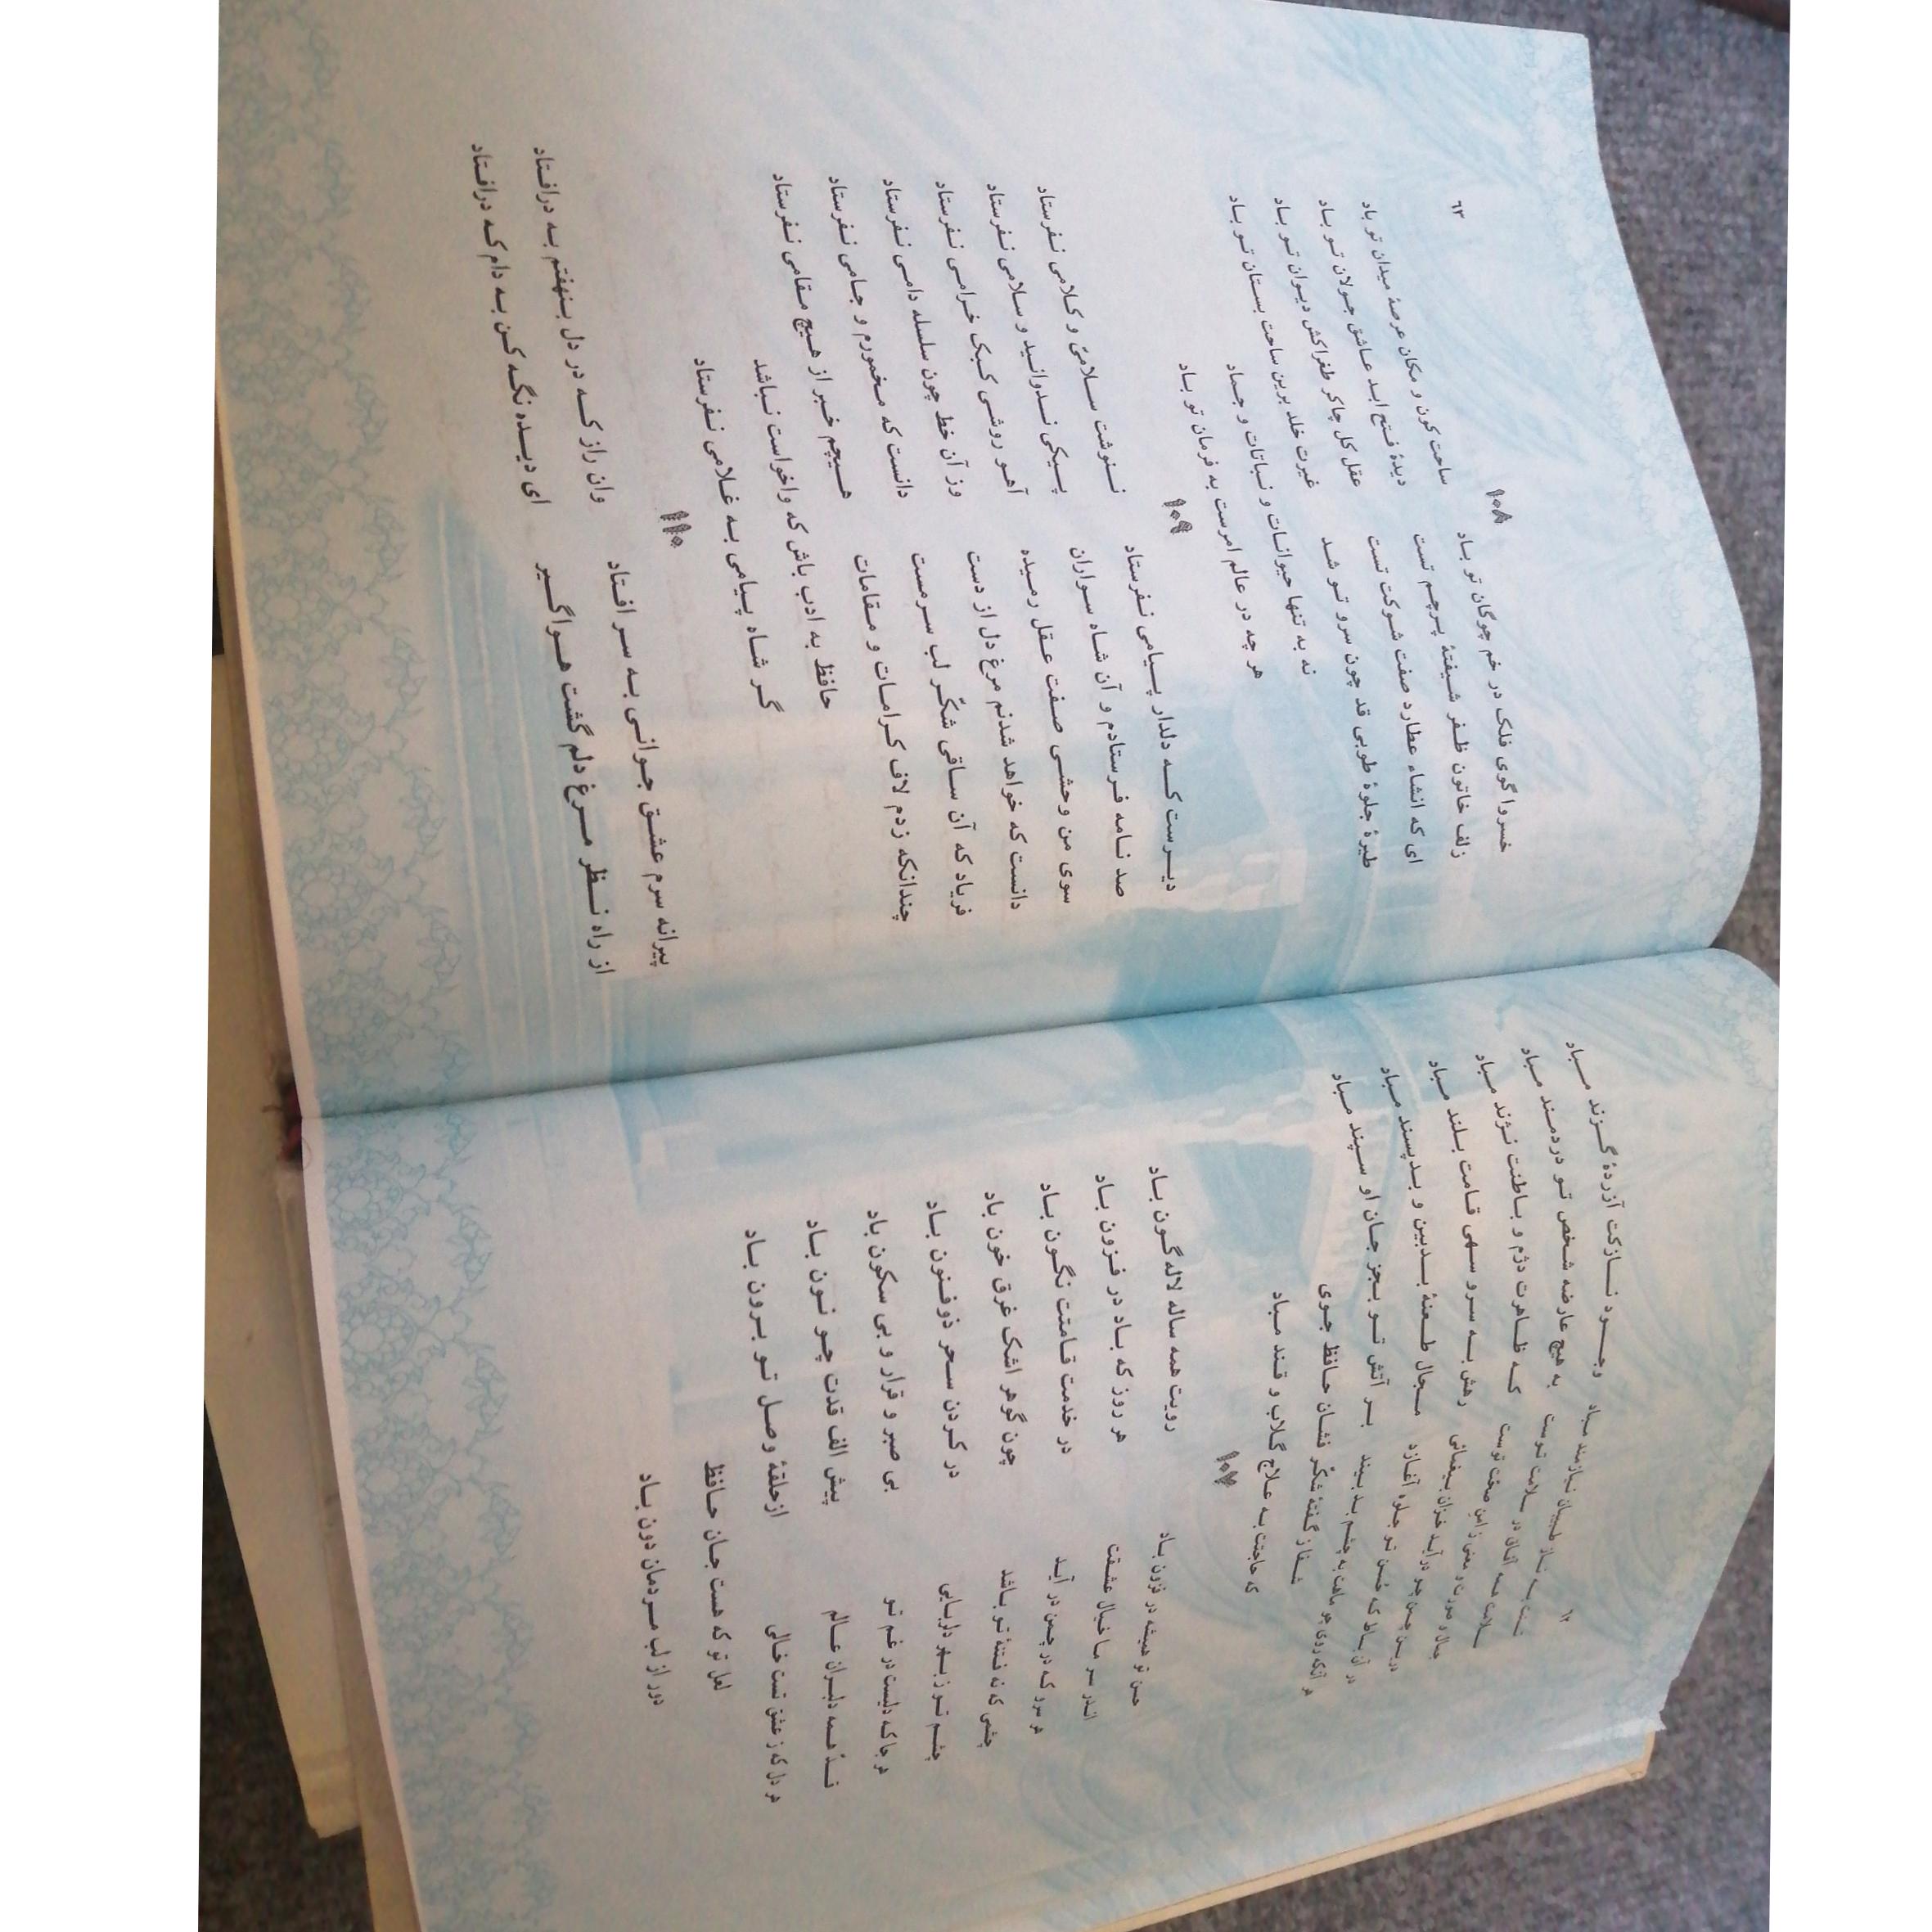 ۶۲
تنت به ناز طبیبان نیازمند مباد وجود نازکت آزردهٔ گزند مباد
سلامت همه آفاق در سلامت توست به هیچ عارضه شخص تو دردمند مباد
جمال صورت و معنی ز امن صحّت توست که ظاهرت دژم و باطنت نژند مباد
درین چمن چو درآید خزان بیغمائی رهش به سرو سهی قامت بلند مباد
در آن بساط که حُسن تو جلوه آغازد مجال طعنهٔ بدبین و بدپسند مباد
هر آنکه روی چو ماهت به چشم بد بیند بر آتش تو بجز جان او سپند مباد
شفا ز گفتهٔ شکّر فشان حافظ جوی
که حاجتت به علاج گلاب و قند مباد
۱۰۷
حسن تو همیشه در فزون باد رویت همه ساله لاله گون باد
اندر سر ما خیال عشقت هر روز که باد در فزون باد
هر سرو که در چمن در آید در خدمت قامتت نگون باد
چشمی که نه فتنهٔ تو باشد چون گوهر اشک غرق خون باد
چشم تو ز بهر دلربایی در کردن سحر ذوفنون باد
هر جا که دلیست در غم تو بی صبر و قرار و بی سکون باد
قدّ همه دلبران عالم پیش الف قدت چو نون باد
هر دل که ز عشق تست خالی ازحلقهٔ وصل تو برون باد
لعل تو که هست جان حافظ
دور از لب مردمان دون باد
۶۳
۱۰۸
خسروا گوی فلک در خم چوگان تو باد ساحت کون و مکان عرصهٔ میدان تو باد
زلف خاتون ظفر شیفتهٔ پرچم تست دیدهٔ فتح ابد عاشق جولان تو باد
ای که انشاء عطارد صفت شوکت تست عقل کل چاکر طغراکش دیوان تو باد
طیرهٔ جلوهٔ طوبی قد چون سرو تو شد غیرت خلد برین ساحت بستان تو باد
نه به تنها حیوانات و نباتات و جماد
هر چه در عالم امرست به فرمان تو باد
۱۰۹
دیرست که دلدار پیامی نفرستاد ننوشت سلامیّ و کلامی نفرستاد
صد نامه فرستادم و آن شاه سواران پیکی ندوانید و سلامی نفرستاد
سوی من وحشی صفت عقل رمیده آهو روشی کبک خرامی نفرستاد
دانست که خواهد شدنم مرغ دل از دست وز آن خط چون سلسله دامی نفرستاد
فریاد که آن ساقی شکّر لب سرمست دانست که مخمورم و جامی نفرستاد
چندانکه زدم لاف کرامات و مقامات هیچم خبر از هیچ مقامی نفرستاد
حافظ به ادب باش که واخواست نباشد
گر شاه پیامی به غلامی نفرستاد
۱۱۰
پیرانه سرم عشق جوانی به سر افتاد وان راز که در دل بنهفتم به درافتاد
از راه نظر مرغ دلم گشت هواگیر ای دیده نگه کن به دام که درافتاد